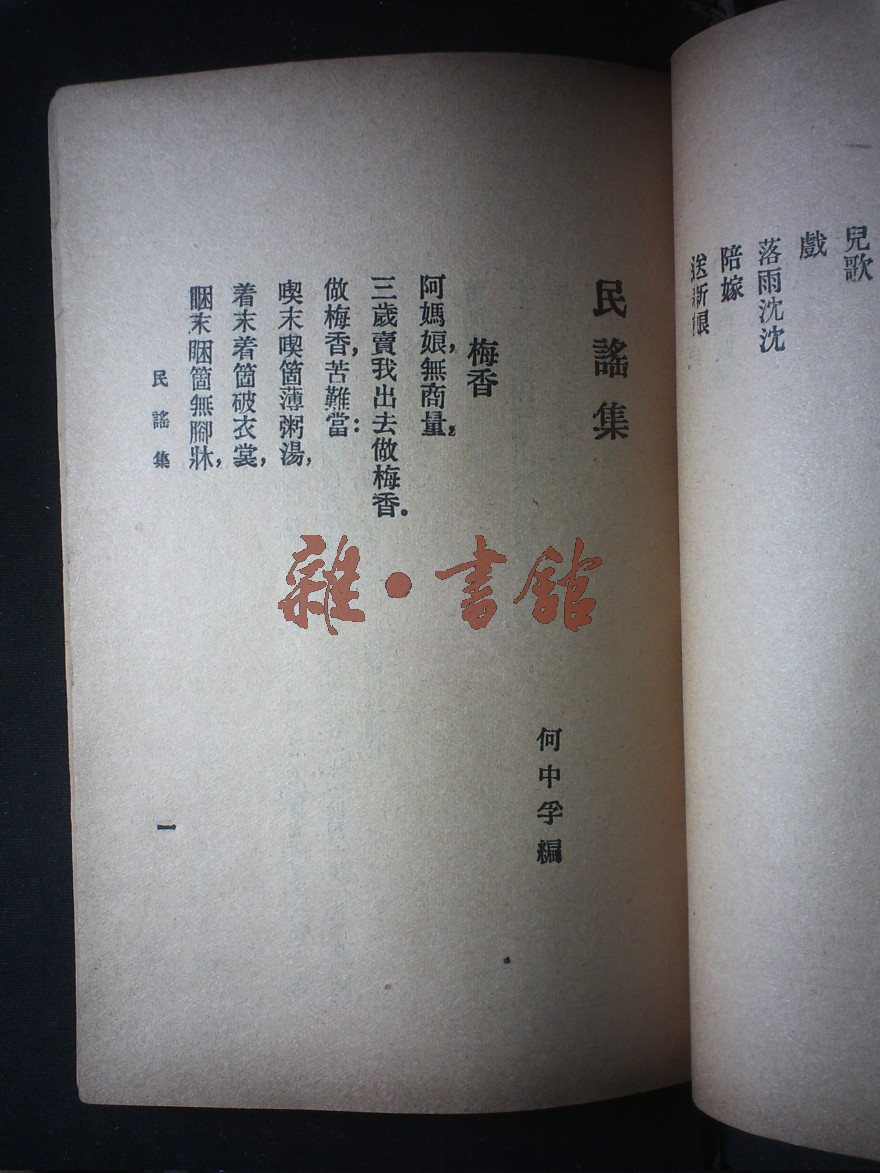 兒歌
戲
落雨沈沈
陪嫁
送新娘
民謠集
何中孚編
梅香
阿媽娘,無商量,
三歲賣我出去做梅香.
做梅香,苦難當:
喫末喫箇薄粥湯,
着末着箇破衣裳,
睏末睏箇無腳牀,
民謠集
一
雜·書館